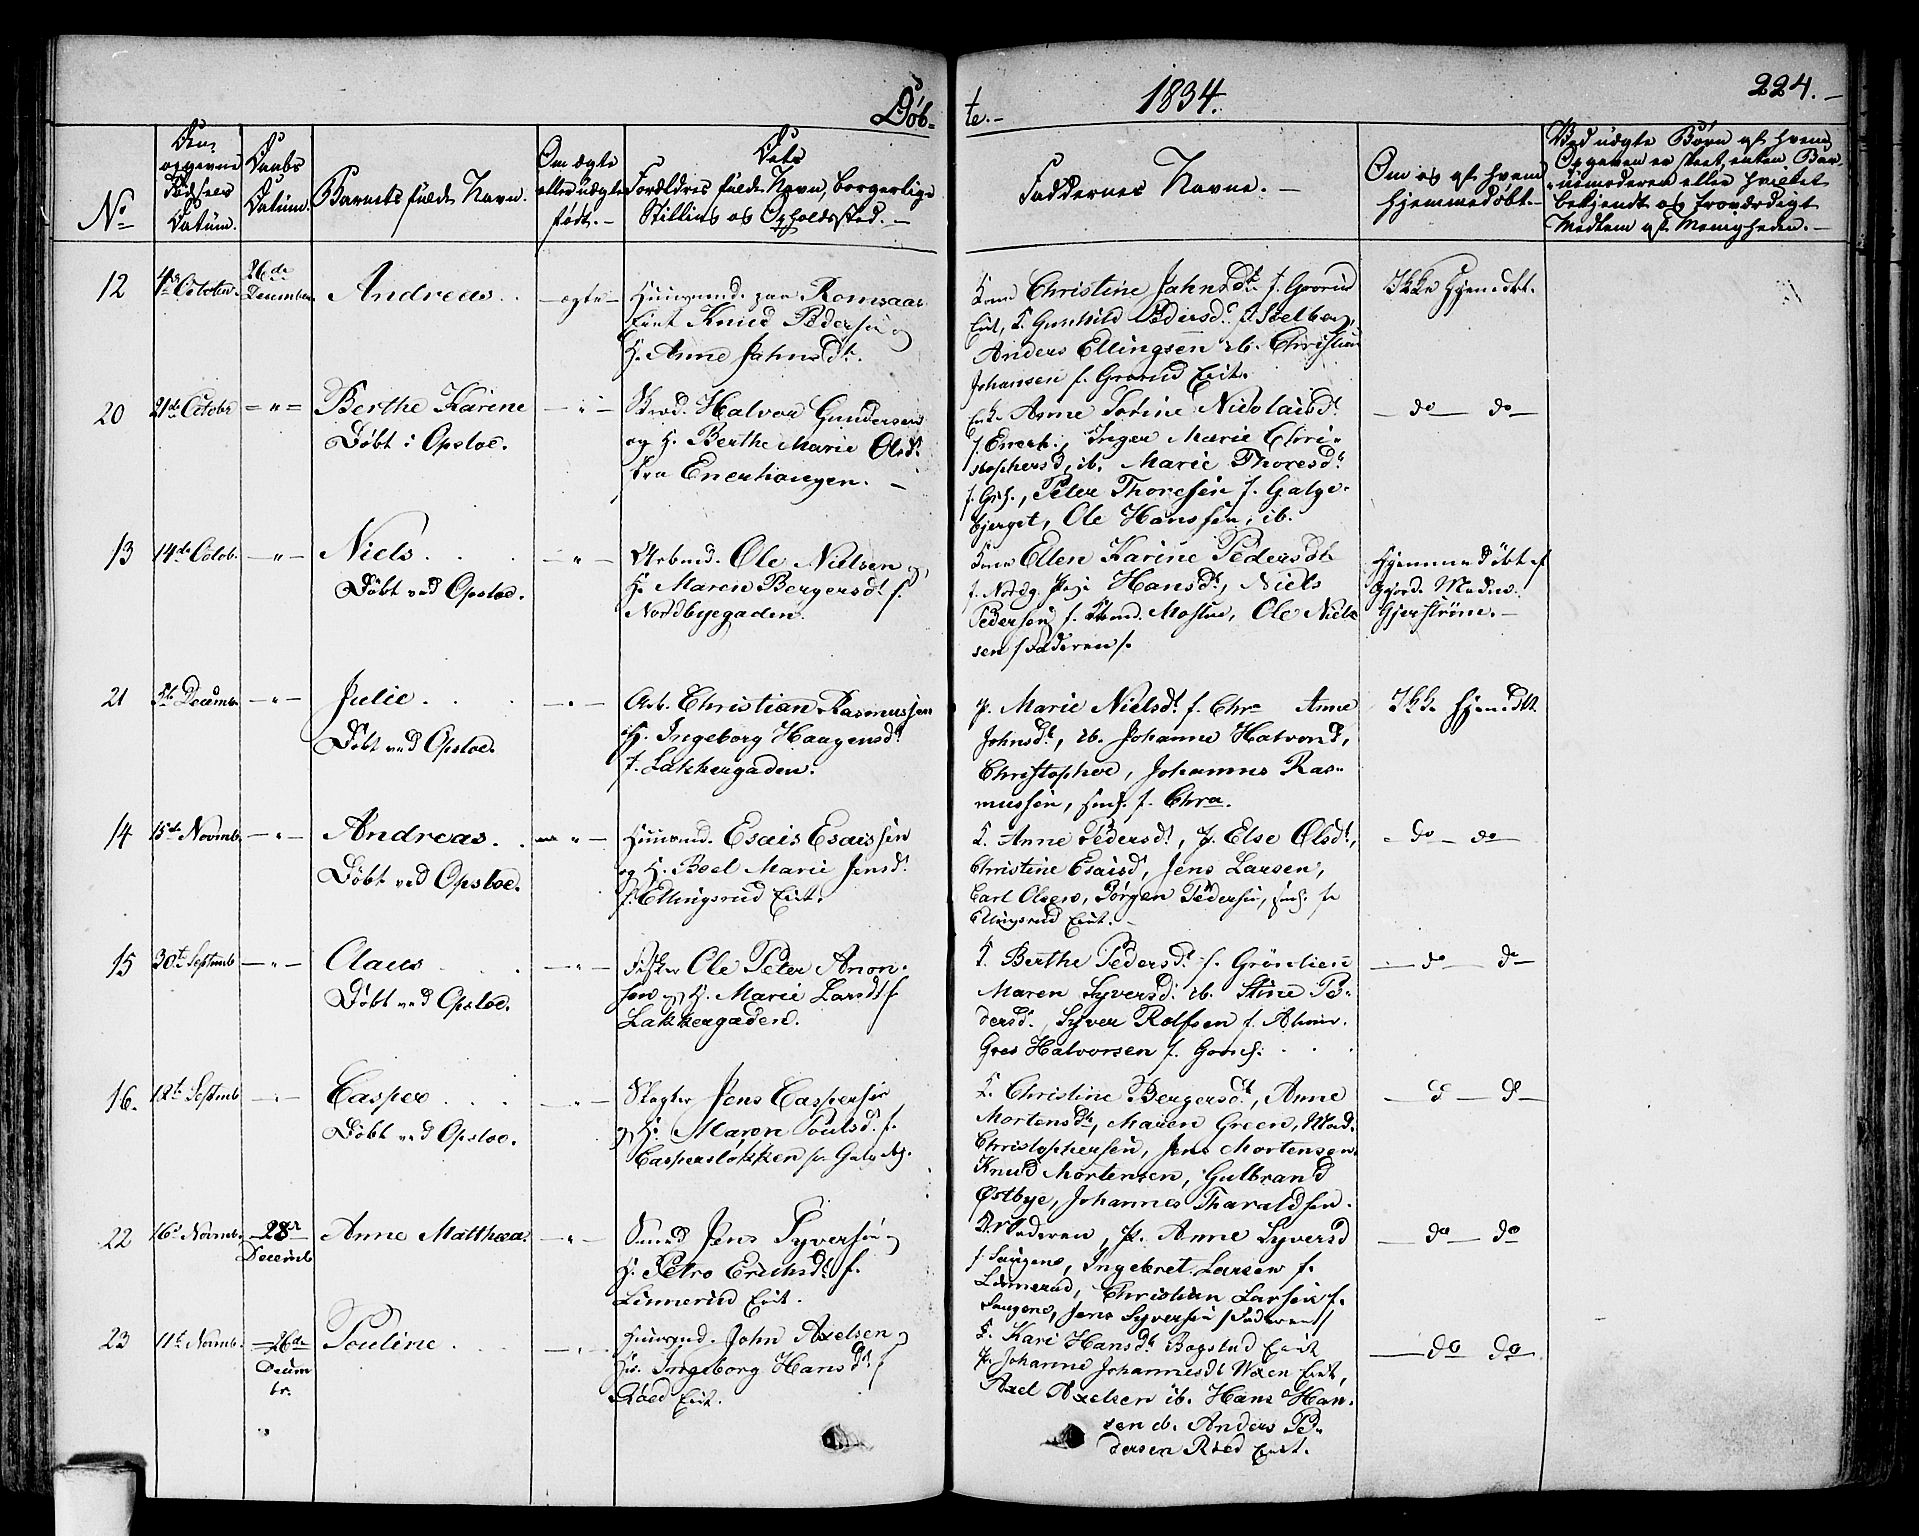 Døb-
te.-
1834.
224.-
No
Datum.
Daabs
Datum.
Barnets fulde Navn.
Om ægte
eller uægte
født.-
Dets
Forældres fulde Navn, borgerlige
Stilling og Opholdssted.-
Faddernes Navne.-
Om og af hvem
hjemmedøbt.-
Ved uægte Børn af hvem
Opgaven er skeet, enten Bar-
nemoderen eller hvilket
bekjendt og troværdigt
Medlem af Menigheden.-
12
October.
26de
December
Andreas.
-ægte-
Knud Pedersen og
H. Anne Jahnsdt.
Kone Christine Jahnsdt. f. Grorud
Eiet, K. Gunhild Pedersd.
Anders Ellingsen ib. Christian
Johansen f. Grorud Eiet.
Ikke Hjemdbt.
20
21de Octobr
= " =
Berthe Karine
Døbt i Opsloe.
- " -
Halvor Gundersen
og H. Berthe Marie Olsd.
fra Enerhaugen.-
Anne Nicolaisdt.
f. Enerh., Inger Marie Chri-
stophersd. ib. Marie Thoresd.
f. Grl., Peter Thoresen f. Galge-
bjerget, Ole Hanssen, ib.
- do - do -
13
14de Octob.
- " -
Niels.
Døbt ved Opsloe.
- " -
Arbmd. Ole Nielsen og
H. Maren Bergersdt f.
Nordbyegaden.
Kone Ellen Karine Pedersdt
Hansdt, Niels
Pedersen f. Ole Niel-
sen /Faderen/.
Hjemmedøbt af
Gjord. Madme.
Gjerstrøm.-
21
Decemb.
- " -
Julie.
Døbt ved Opsloe.
- " -
Arb. Christian Rasmussen
H. Ingeborg Haagensdt
f. Lakkergaden.
P. Marie Nielsdt. f. Chra Anne
Johnsdt, ib. Johanne Halvorsd,
Christopher, Johannes Ras-
mussen, f. Chra.
Ikke Hjemdbt.
14
15de Novemb.
- " -
Andreas.
Døbt ved Opsloe.
- " -
Huusmd. Esais Esaissen
og H. Boel Marie Jensd.
f. Ellingsrud Eiet.
K. Anne Pedersdt, P. Else Olsdt,
Christine Esaisd, Jens Larsen,
Carl Olsen, Jørgen Pedersen, f.
Ellingsrud Eiet.-
- do - do -
15
30te Septemb
- " -
Claus
Døbt ved Opsloe.
- " -
Fisker Ole Peter Anon-
sen og H. Marie Larsdt f.
Lakkergaden.
K. Berthe Pedersdt. f. Grønlien
Maren Syversd. ib. Stine Pe-
dersd., Syver Rolfsen
Halvorsen
- do - do -
16.
12te Septemb
- " -
Casper
Døbt ved Opsloe.
- " -
Slagter Jens Caspersen
og H. Maren Poulsd. f.
Caspersløkken
K. Christine Bergersdt, Anne
Mortensdt, Maren Green, Mad.
Christophersen, Jens Mortensen
Knud Mortensen, Gulbrand
Østbye, Johannes Tharaldsen.
- d - d -
22
16d Novemb.
28
Decemb
Anne Matthea.
- " -
Smed Jens Syversen og
H. Petro Erichsdt. f.
Linnerud Eiet.
Moderen, P. Anne Syversd
Ingebret Larsen f.
Linnerud, Christian Larsen f.
Jens Syversen /Faderen/
- do - do -
23
11te Novemb.
26de
Decem
br.
Pouline
- " -
Huusmd. John Axelsen og
Ingeborg Hansdt f
Røed Eiet.
K. Kari Hansdt Bogstad Eiet
P. Johanne Johannesdt Eiet,
Axel Axelsen ib. Hans Han-
sen ib. Anders Pe-
dersen Røed Eiet.
- do - do -